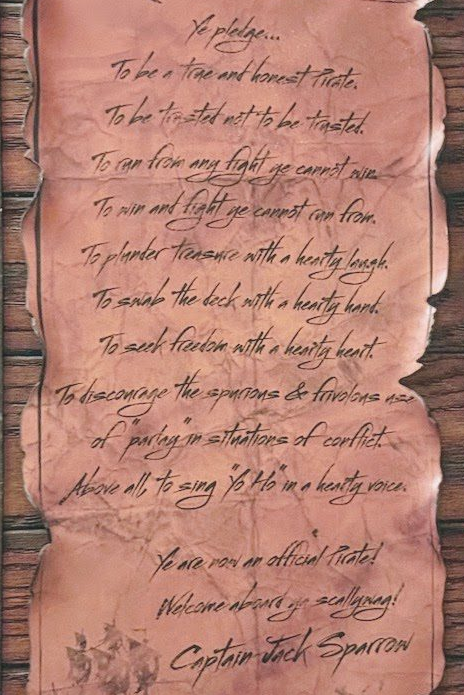 Ye pledge...
To be a true and honest Pirate.
To be trusted not to be trusted.
To run from any fight ye cannot win.
To win and fight ye cannot run from.
To plunder treasure with a hearty laugh.
To swab the deck with a hearty hand.
To seek freedom with a hearty heart.
To discourage the spurious & frivolous use
of "parlay" in situations of conflict.
Above all, to sing "Yo Ho" in a hearty voice.
Ye are now an official Pirate!
Welcome aboard ye scallywag!
Captain Jack Sparrow